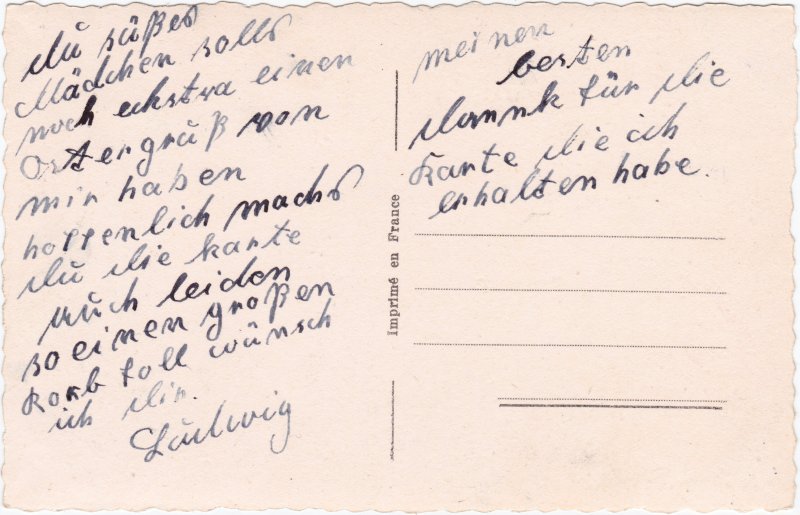 Du süßes
Mädchen sollst
noch eckstra einen
Ostergrüß von
mir haben
hoffenlich machst
Dü die karte
auch leiden
so einen großen
Korb foll wünsch
ich Dir.
Lüdwig
meinen
besten
Dannk für die
Karte die ich
erhalten habe.
Imprimé en France